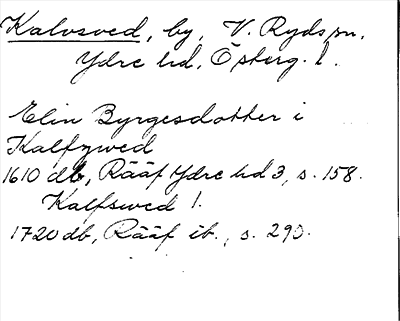 Kalvsved, by, V. Ryds sn,
Ydre hd, Österg. l.
Elin Byrgesdotter i
Kalfzwed
1610 db, Rääf Ydre hd 3, s. 158.
Kalfswed 1.
1720 db, Rääf ib., s. 290.